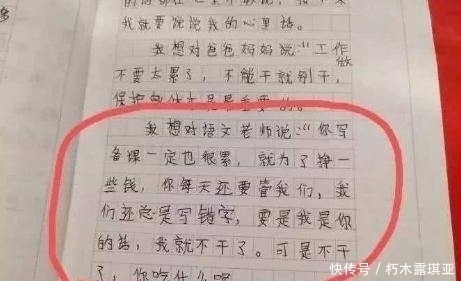 我就要说说我的心里话。
我想对爸爸妈妈说:“工作做
不要太累了,不能干就别干,
保护身体才是最重要的。
我想对语文老师说:“你写
备课一定也很累,就为了挣一
些钱,你每天还要管我们,我
们还总是写错字,要是我是你
的话,我就不干了。可是不干
了,你吃什么呢
快传号/朽木露琪亚